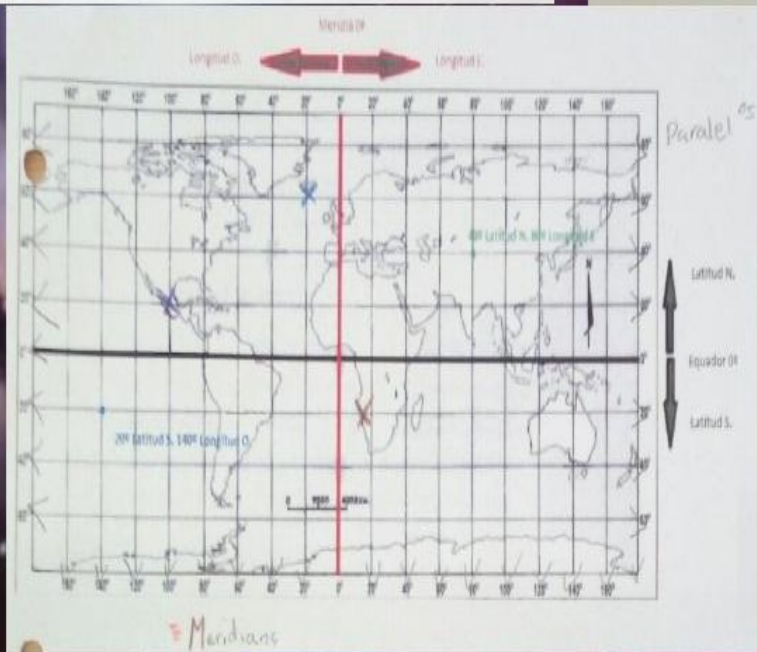 Meridià 0º
Longitud O. Longitud E.
160º 140º 120º 100º 80º 60º 40º 20º 0º 20º 40º 60º 80º 100º 120º 140º 160º
Paralel
Latitud N.
N
40º Latitud N. 80º Longitud E.
Equador 0º
Latitud S.
20º Latitud S. 140º Longitud O.
160º 140º 120º 100º 80º 60º 40º 20º 0º 20º 40º 60º 80º 100º 120º 140º 160º
Meridians